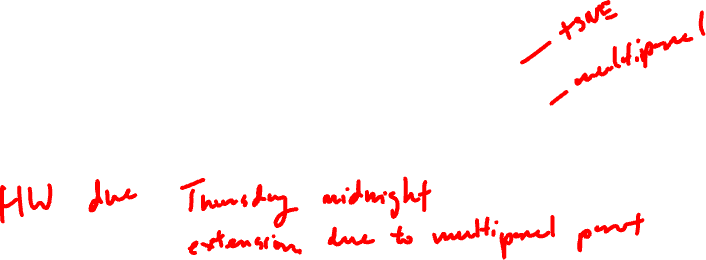 - tSNE
- multipanel
HW due Thursday midnight
extension due to multipanel part